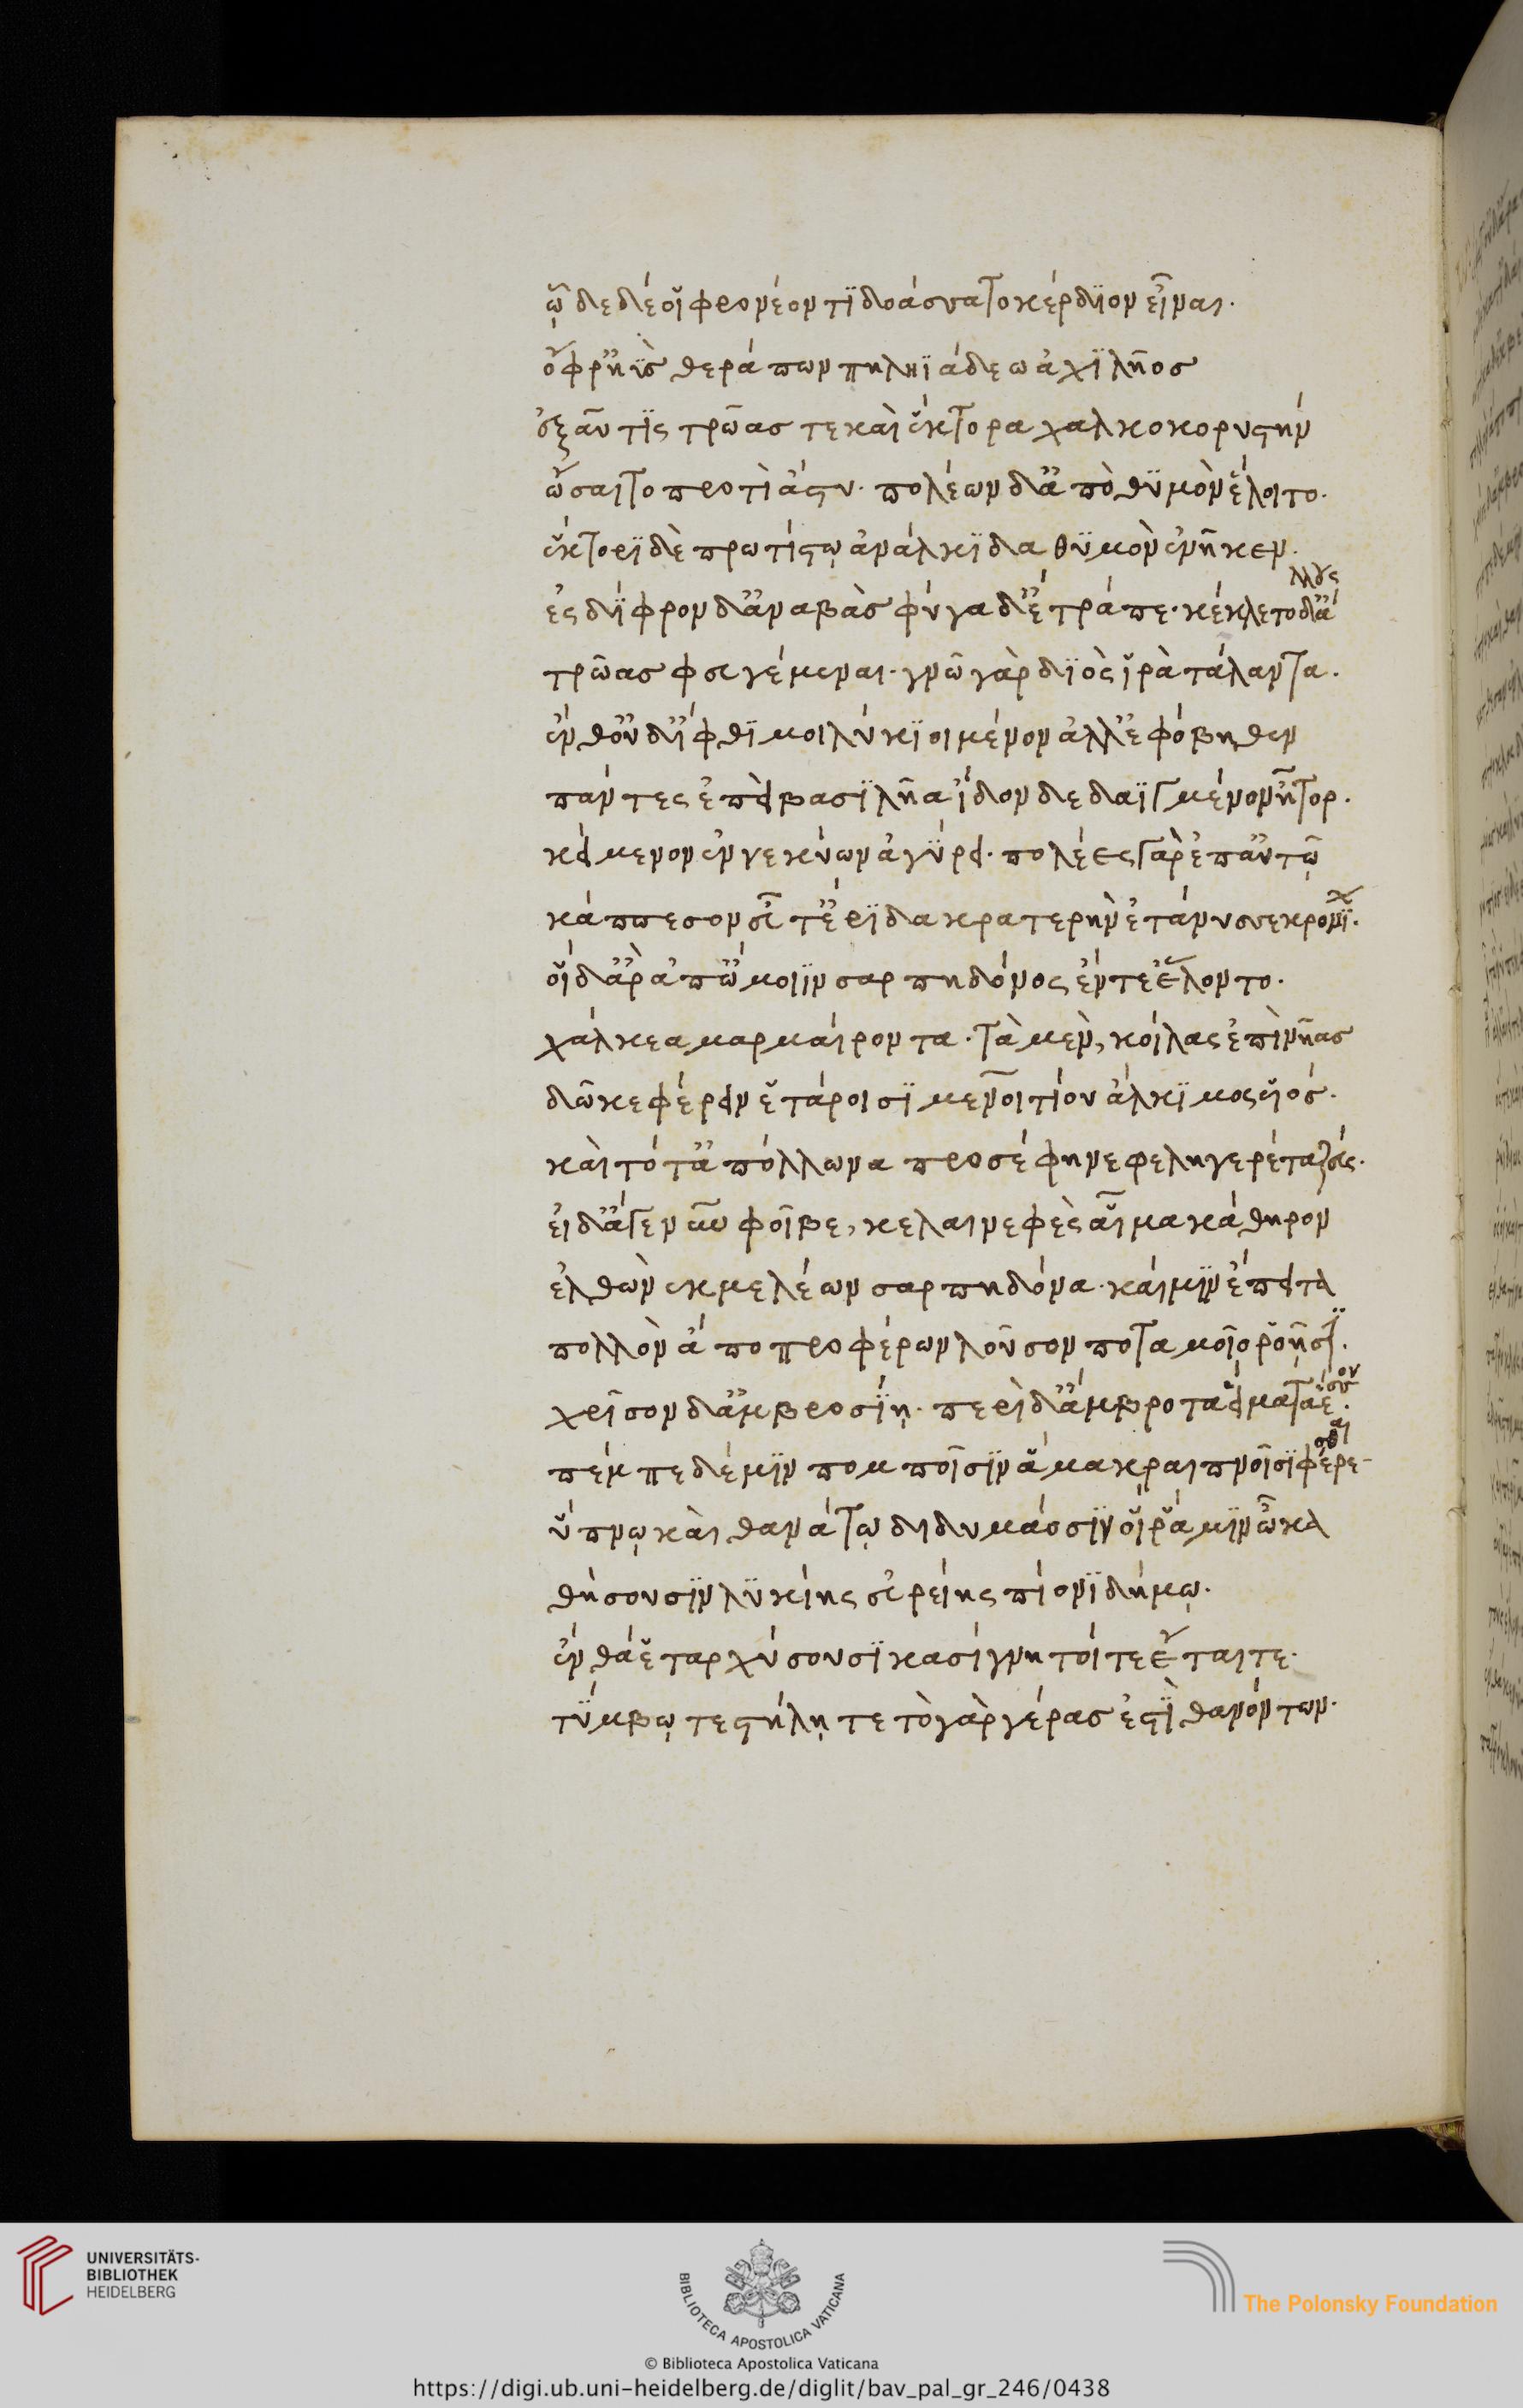 ὧδε δέ οἱ φρονέοντι δοάσσατο κέρδιον εἶναι.
ὄφρ' ἠῢς θεράπων πηληϊάδεω ἀχιλῆος
ἐξαῦτις τρῶας τε καὶ ἕκτορα χαλκοκορυστὴν
ὤσαιτο προτὶ ἄστυ. πολέων δ' ἀπὸ θυμὸν ἕλοιτο.
ἕκτορι δὲ πρωτίστῳ ἀνάλκιδα θυμὸν ἐνῆκεν.
ἐς δίφρον δ' ἀναβὰς φύγαδ' ἔτραπε. κέκλετο δ' ἄλλους
τρῶας φευγέμεναι. γνῶ γὰρ διὸς ἱρὰ τάλαντα.
ἔνθ' οὐδ' ἴφθιμοι λύκιοι μένον ἀλλ' ἐφόβηθεν
πάντες ἐπεὶ βασιλῆα ἴδον δεδαϊγμένον ἦτορ.
κείμενον ἐν νεκύων ἀγύρει. πολέες γὰρ ἐπ' αὐτῷ
κάππεσον εὖτ' ἔριδα κρατερὴν ἐτάνυσσε κρονίων.
οἱ δ' ἄρ' ἀπ' ὤμοιιν σαρπηδόνος ἔντε' ἕλοντο.
χάλκεα μαρμαίροντα. τὰ μὲν, κοίλας ἐπὶ νῆας
δῶκε φέρειν ἑτάροισι μενοιτίου ἄλκιμος υἱός.
καὶ τότ' ἀπόλλωνα προσέφη νεφεληγερέτα ζεύς.
εἰ δ' ἄγε νῦν φοῖβε, κελαινεφὲς αἷμα κάθηρον
ἐλθὼν ἐκ μελέων σαρπηδόνα. καί μιν ἔπειτα
πολλὸν ἄπο προφέρων λοῦσον ποταμοῖο ῥοῇσι.
χρῖσον δ' ἀμβροσίῃ. περὶ δ' ἄμβροτα εἵματα ἕσσον.
πέμπε δέ μιν πομποῖσιν ἅμα κραιπνοῖσι φέρεσθαι
ὕπνῳ καὶ θανάτῳ διδυμάοσσιν οἵ ῥά μιν ὦκα
θήσουσιν λυκίης εὐρείης πίονι δήμῳ.
ἔνθά ἑ ταρχύσουσι κασίγνητοί τε ἔται τε.
τύμβῳ τε στήλῃ τε τὸ γὰρ γέρας ἐστὶ θανόντων.
UNIVERSITÄTS-
BIBLIOTHEK
HEIDELBERG
BIBLIOTECA APOSTOLICA VATICANA
The Polonsky Foundation
© Biblioteca Apostolica Vaticana
https://digi.ub.uni-heidelberg.de/diglit/bav_pal_gr_246/0438